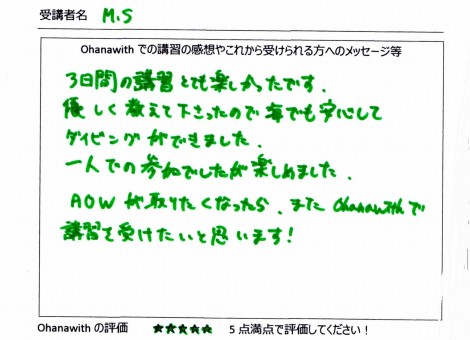 受講者名 M.S
Ohanawith での講習の感想やこれから受けられる方へのメッセージ等
3日間の講習とても楽しかったです.
優しく教えて下さったので海でも安心して
ダイビングができました.
一人での参加でしたが楽しめました.
AOWが取りたくなったら、また Ohanawithで
講習を受けたいと思います!
Ohanawith の評価 ★★★★★ 5 点満点で評価してください！